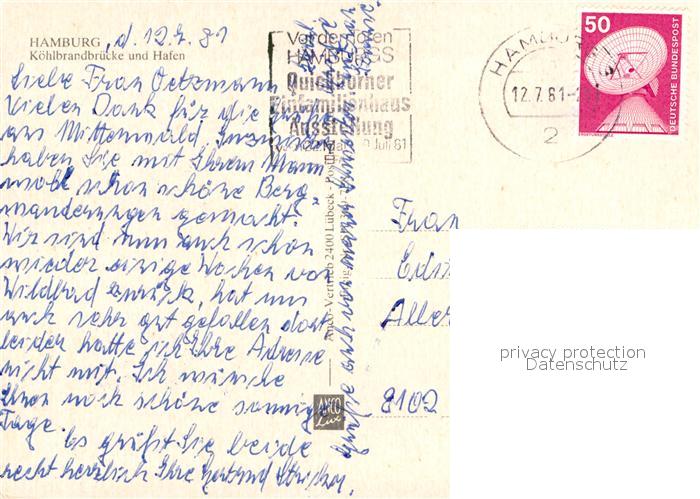 HAMBURG, d. 12.7.81
Köhlbrandbrücke und Hafen
Liebe Frau Oetzmann
Vielen Dank für die
aus Mittenwald. Inzwischen
haben Sie mit Ihrem Mann
wohl schon schöne Berg-
wanderungen gemacht?
Wir sind nun auch schon
wieder einige Wochen von
Wildbad zurück, hat uns
auch sehr gut gefallen dort
leider hatte ich Ihre Adresse
nicht mit. Ich wünsche
Ihnen noch schöne sonnige
Tage.
Es grüßt Sie beide
recht herzlich Ihre Gertrud
Grüße auch von meinem
Vor den Toren
HAMBURGS
Quickborner
Einfamilienhaus
Ausstellung
Juli 81
HAMBURG
12.7.81-
2
50
DEUTSCHE BUNDESPOST
Vertrieb 2400 Lübeck
Frau
8102
privacy protection
Datenschutz